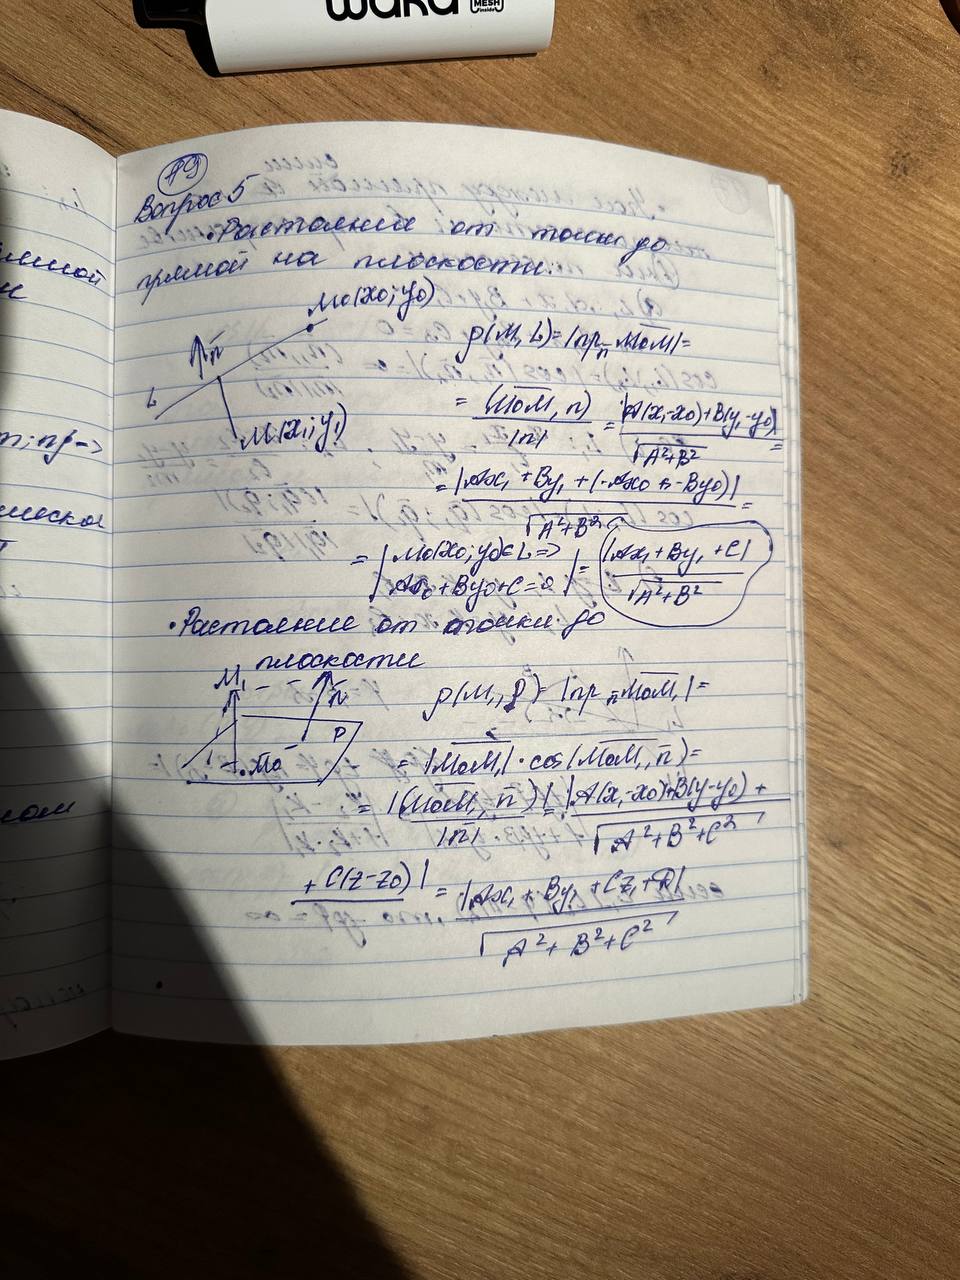 waka
MESH
inside
19
Вопрос 5
• Растояние от точки до
прямой на плоскости:
M₀(x₀; y₀)
n̄
L
M₁(x₁; y₁)
ρ(M₁, L) = |пр_n̄ M₀M₁| =
= (M₀M₁, n̄) / |n̄| = |A(x₁-x₀)+B(y₁-y₀)| / √(A²+B²) =
= |Ax₁ + By₁ + (-Ax₀ + -By₀)| / √(A²+B²) =
= | M₀(x₀; y₀) ∈ L => Ax₀ + By₀ + C = 0 | = |Ax₁ + By₁ + C| / √(A²+B²)
• Растояние от точки до
плоскости
M₁
n̄
P
M₀
ρ(M₁, P) = |пр_n̄ M₀M₁| =
= |M₀M₁| · cos(M₀M₁, n̄) =
= |(M₀M₁, n̄)| / |n̄| = |A(x₁-x₀)+B(y-y₀) +
+ C(z-z₀)| / √(A²+B²+C²) = |Ax₁ + By₁ + Cz₁ + D| / √(A²+B²+C²)